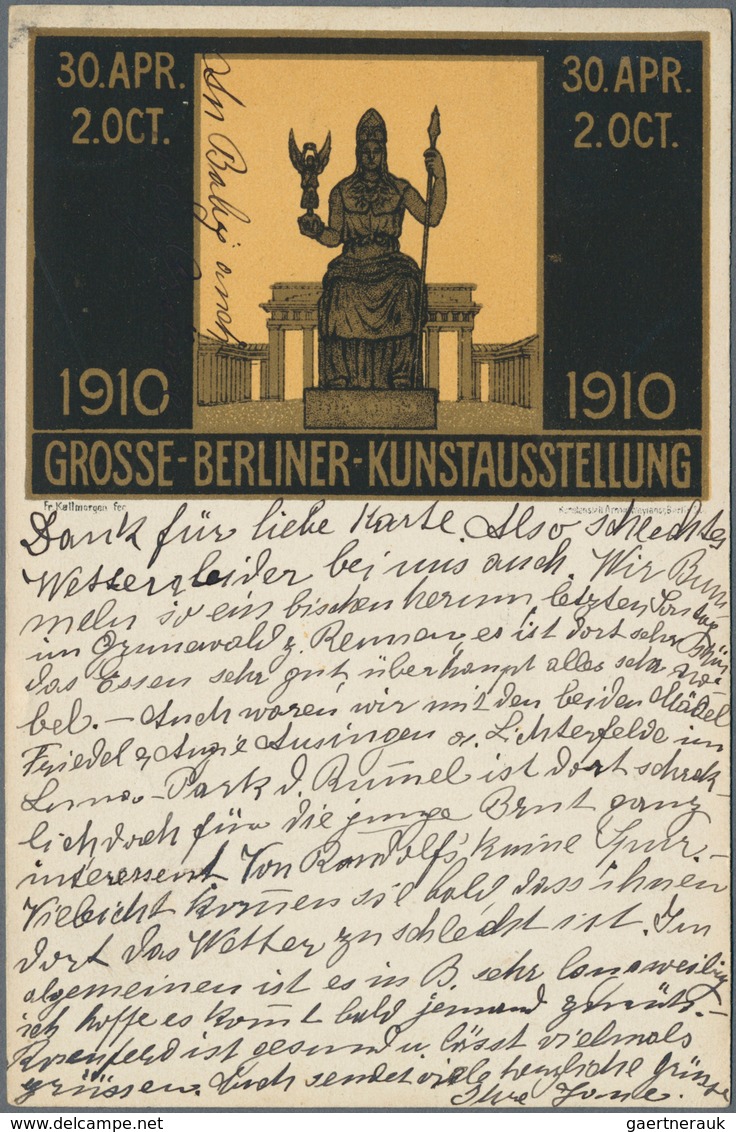 30. APR.
2. OCT.
30. APR.
2. OCT.
1910
1910
GROSSE-BERLINER-KUNSTAUSSTELLUNG
Fr. Kallmorgen fec.
Dank für liebe Karte. Also schlechtes
Wetter leider bei uns auch. Wir Bum
meln so ein bischen herum letzten Sonntag
im Grunewald z. Rennen es ist dort sehr schön
das Essen sehr gut überhaupt alles sehr no-
bel. – Auch waren wir mit den beiden Mädel
Friedel & a. Lichterfelde im
Luna-Park d. Rummel ist dort schrek-
lich doch für die junge Brut ganz
interessent Von Randolfs keine Spur. –
Vieleicht kom̅en sie bald, dass ihnen
dort das Wetter zu schlecht ist. Im
algemeinen ist es in B. sehr langweilig
ich hoffe es kom̅t bald jemand zurück. –
Rosenfeld ist gesund u. lässt vielmals
grüssen. Euch sendet viele herzliche Grüsse
Ihre
gaertnerauk